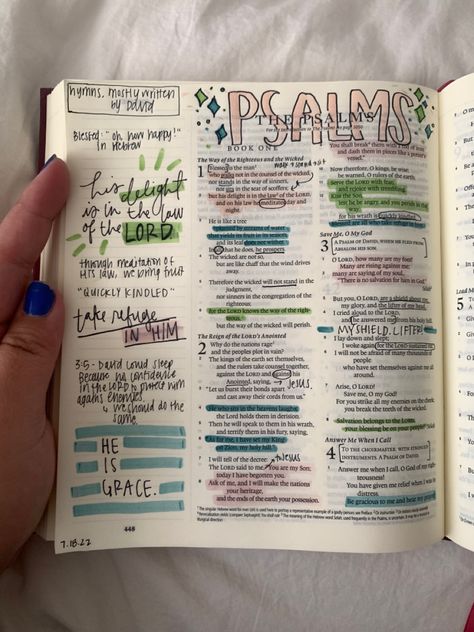 hymns, mostly written
by David
Blessed: "oh how happy!"
in Hebrew
his delight
is in the law
of the LORD.
through meditation of
HIS law, we bring fruit
"QUICKLY KINDLED"
take refuge
IN HIM
3:5 - David could sleep
Because he confidence
in the LORD to protect him
against enemies.
↳ we should do the
same.
HE
IS
GRACE.
7.18.22
448
PSALMS
THE PSALMS
BOOK ONE
The Way of the Righteous and the Wicked
1 Blessed is the man
who walks not in the counsel of the wicked,
nor stands in the way of sinners,
nor sits in the seat of scoffers;
but his delight is in the law of the LORD,
and on his law he meditates day and
night.
He is like a tree
planted by streams of water
that yields its fruit in its season,
and its leaf does not wither.
In all that he does, he prospers.
The wicked are not so,
but are like chaff that the wind drives
away.
Therefore the wicked will not stand in the
judgment,
nor sinners in the congregation of the
righteous;
for the LORD knows the way of the right-
eous,
but the way of the wicked will perish.
The Reign of the LORD's Anointed
2 Why do the nations rage
and the peoples plot in vain?
The kings of the earth set themselves,
and the rulers take counsel together,
against the LORD and against his
Anointed, saying,
→ Jesus.
"Let us burst their bonds apart
and cast away their cords from us."
He who sits in the heavens laughs;
the Lord holds them in derision.
Then he will speak to them in his wrath,
and terrify them in his fury, saying,
"As for me, I have set my King
on Zion, my holy hill."
JESUS
I will tell of the decree:
The LORD said to me, "You are my Son;
today I have begotten you.
Ask of me, and I will make the nations
your heritage,
and the ends of the earth your possession.
You shall break them with a rod of iron
and dash them in pieces like a potter's
vessel."
Now therefore, O kings, be wise;
be warned, O rulers of the earth.
Serve the LORD with fear,
and rejoice with trembling.
Kiss the Son,
lest he be angry, and you perish in the way,
for his wrath is quickly kindled.
Blessed are all who take refuge in him.
Save Me, O My God
3 A PSALM OF DAVID, WHEN HE FLED FROM
ABSALOM HIS SON.
O LORD, how many are my foes!
Many are rising against me;
many are saying of my soul,
"There is no salvation for him in God."
Selah
But you, O LORD, are a shield about me,
my glory, and the lifter of my head.
I cried aloud to the LORD,
and he answered me from his holy hill.
MY SHIELD. LIFTER.
I lay down and slept;
I woke again, for the LORD sustained me.
I will not be afraid of many thousands of
people
who have set themselves against me all
around.
Arise, O LORD!
Save me, O my God!
For you strike all my enemies on the cheek;
you break the teeth of the wicked.
Salvation belongs to the LORD;
your blessing be on your people!
Selah
Answer Me When I Call
4 TO THE CHOIRMASTER: WITH STRINGED
INSTRUMENTS. A PSALM OF DAVID.
Answer me when I call, O God of my right-
eousness!
You have given me relief when I was in
distress.
Be gracious to me and hear my prayer!